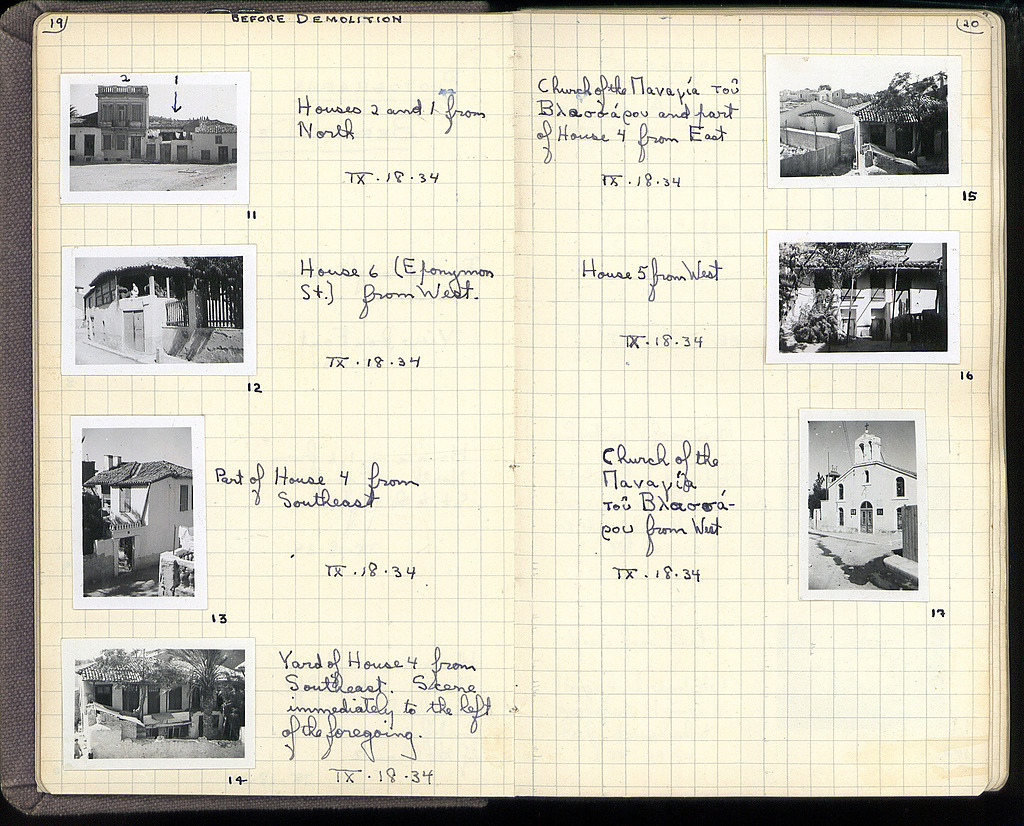 19
BEFORE DEMOLITION
2 1
Houses 2 and 1 from
North
IX.18.34
11
House 6 (Eponymon
St.) from West.
IX.18.34
12
Part of House 4 from
Southeast
IX.18.34
13
Yard of House 4 from
Southeast. Scene
immediately to the left
of the foregoing.
IX.18.34
14
20
Church of the Παναγία τοῦ
Βλασσάρου and part
of House 4 from East
IX.18.34
15
House 5 from West
IX.18.34
16
Church of the
Παναγία
τοῦ Βλασσά-
ρου from West
IX.18.34
17